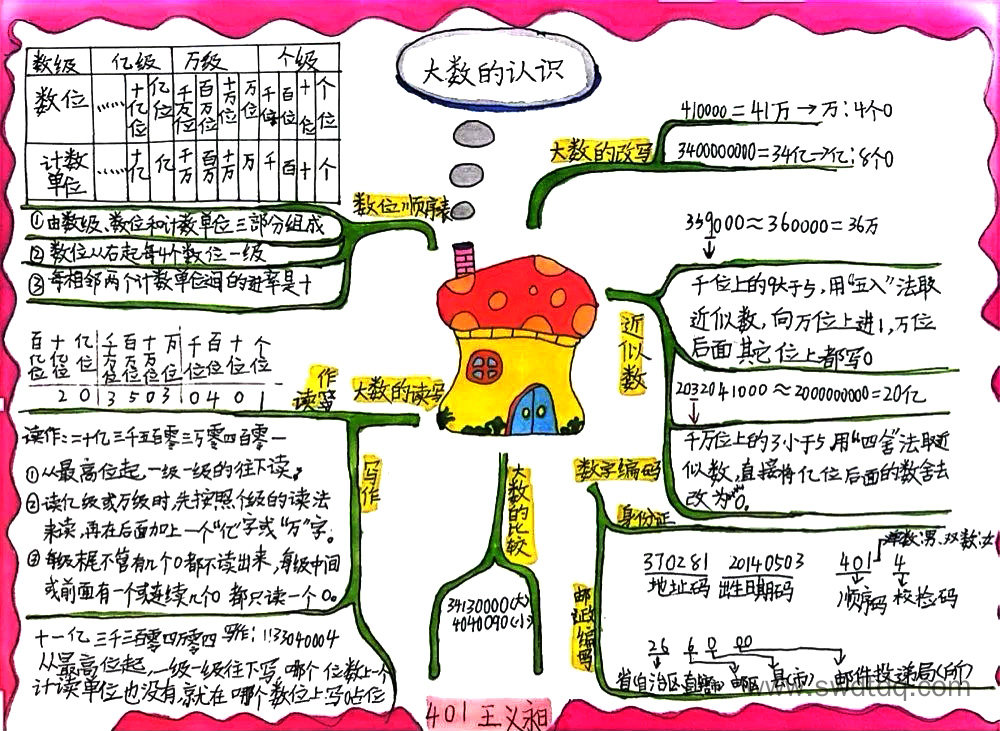 大数的认识
数级 亿级 万级 个级
数位 …… 十亿位 亿位 千万位 百万位 十万位 万位 千位 百位 十位 个位
计数单位 …… 十亿 亿 千万 百万 十万 万 千 百 十 个
数位顺序表
①由数级、数位和计数单位三部分组成
②数位从右起每4个数位一级
③每相邻两个计数单位间的进率是十
大数的改写
410000=41万→万:4个0
3400000000=34亿→亿:8个0
近似数
359000≈360000=36万
千位上的9大于5,用“五入”法取
近似数,向万位上进1,万位
后面其它位上都写0
2032041000≈2000000000=20亿
千万位上的3小于5,用“四舍”法取近
似数,直接将亿位后面的数舍去
改为0。
大数的读写
读作
百亿位 十亿位 亿位 千万位 百万位 十万位 万位 千位 百位 十位 个位
2 0 1 3 5 0 3 1 0 4 0 1
读作:二十亿三千五百零三万零四百零一
①从最高位起,一级一级的往下读。
②读亿级或万级时,先按照个级的读法
来读,再在后面加上一个“亿”字或“万”字。
③每级末尾不管有几个0都不读出来,每级中间
或前面有一个或连续几个0都只读一个0。
写作
十一亿三千三百零四万零四 写作:1133040004
从最高位起,一级一级往下写,哪个位数上一个
计读单位也没有,就在哪个数位上写0占位
大数的比较
34130000(大)
4040090(小)
数字编码
身份证
单数:男,双数:女
370281 20140503 401 4
地址码 出生日期码 顺序码 校检码
邮政编写
26 6 0 00
省自治区直辖市 邮区 县(市) 邮件投递局(所)
401 王义昶
www.swdtdq.com